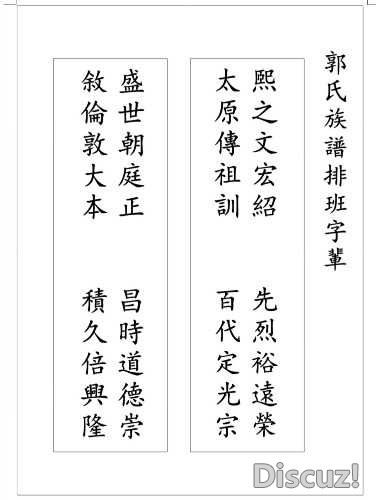 郭氏族譜排班字輩
熙之文宏紹 先烈裕遠榮
太原傳祖訓 百代定光宗
盛世朝庭正 昌時道德崇
敘倫敦大本 積久倍興隆
Discuz!